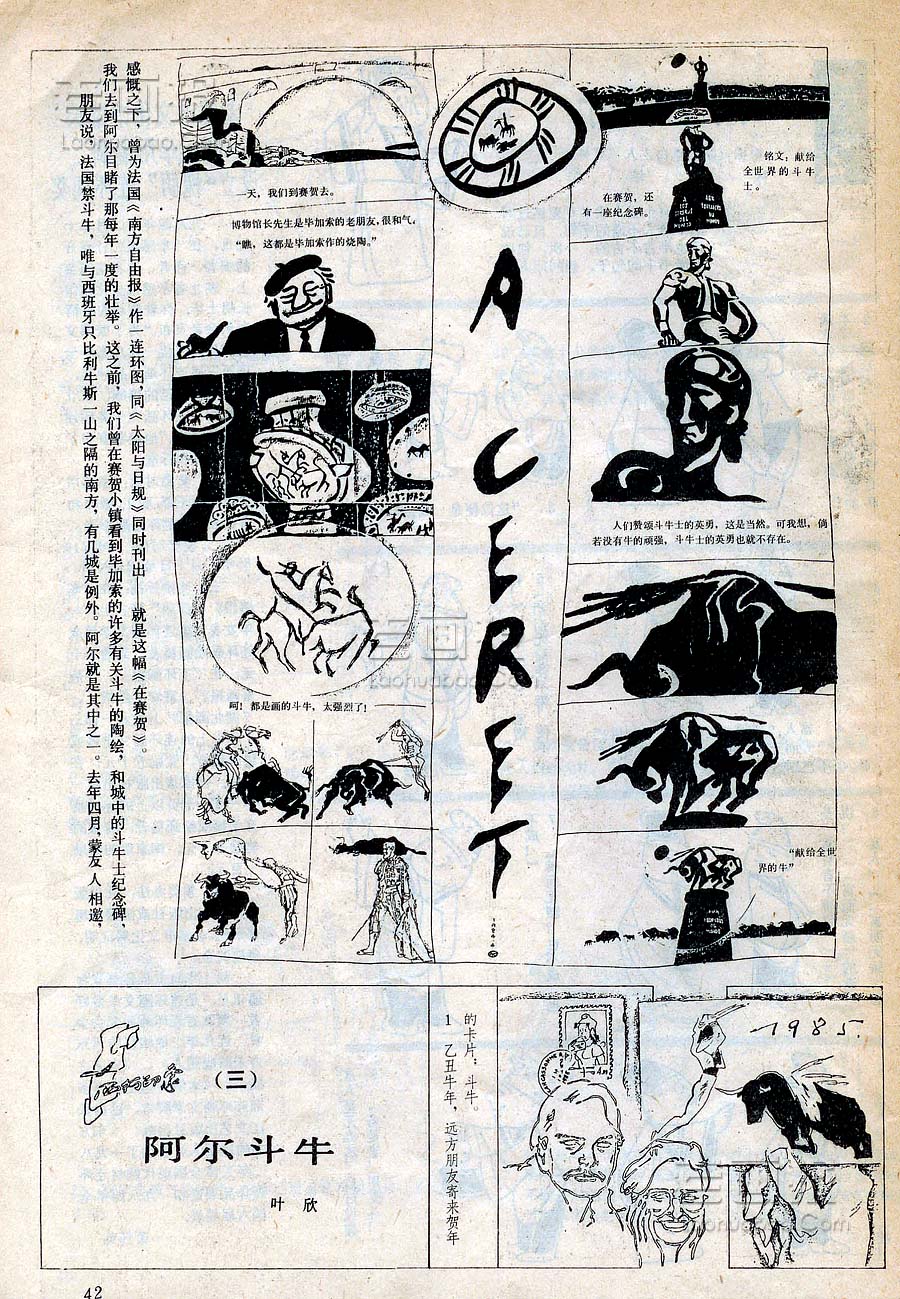 朋友说，法国禁斗牛，唯与西班牙只比利牛斯一山之隔的南方，有几城是例外。阿尔就是其中之一。去年四月，蒙友人相邀，
我们去到阿尔目睹了那每年一度的壮举。这之前，我们曾在赛贺小镇看到毕加索的许多有关斗牛的陶绘，和城中的斗牛士纪念碑，
感慨之下，曾为法国《南方自由报》作一连环图，同《太阳与日规》同时刊出 就是这幅《在赛贺》。
一天，我们到赛贺去。
博物馆长先生是毕加索的老朋友，很和气，
“瞧，这都是毕加索作的烧陶。”
呵！都是画的斗牛，太强烈了！
A CERET
在赛贺，还
有一座纪念碑。
铭文：献给
全世界的斗牛
士。
人们赞颂斗牛士的英勇，这是当然。可我想，倘
若没有牛的顽强，斗牛士的英勇也就不存在。
“献给全世
界的牛”
印象
（三）
阿尔斗牛
叶欣
1 乙丑牛年，远方朋友寄来贺年
的卡片：斗牛。
1985.
42
老画报
Laohuabao.Com